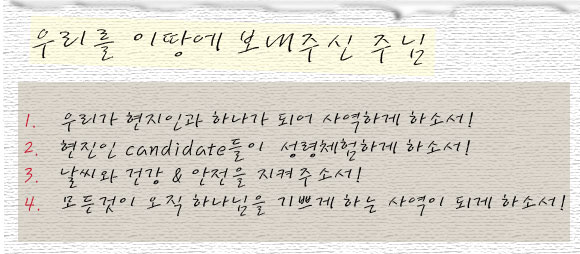 우리를 이땅에 보내주신 주님
1. 우리가 현지인과 하나가 되어 사역하게 하소서!
2. 현진인 candidate들이 성령체험하게 하소서!
3. 날씨와 건강 & 안전을 지켜주소서!
4. 모든것이 오직 하나님을 기쁘게 하는 사역이 되게 하소서!